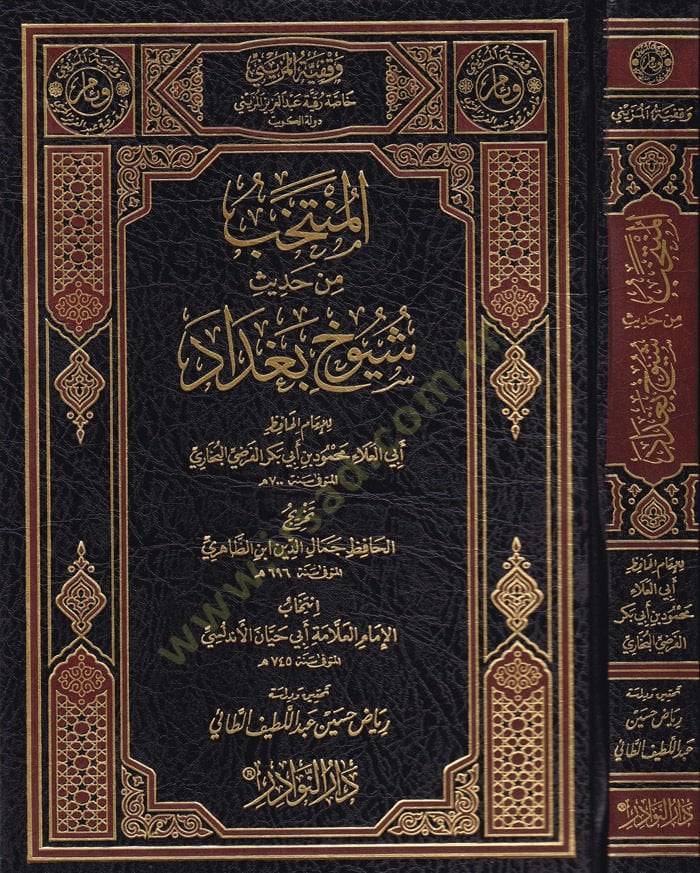 وقفية المزيني
خاصة رقية عبد العزيز المزيني
دولة الكويت
وقفية المزيني
وقفية المزيني
المُنْتَخَبُ
مِنْ حَدِيثِ
شُيُوخِ بَغْدَادَ
للإمام الحافظ
أبي العلاء محمود بن أبي بكر الفرضي البخاري
المتوفى سنة ٧٠٠ هـ
تخريج
الحافظ جمال الدين ابن الظاهري
المتوفى سنة ٦٩٦ هـ
انتخاب
الإمام العلامة أبي حيان الأندلسي
المتوفى سنة ٧٤٥ هـ
تحقيق ودراسة
رياض حسين عبد اللطيف الطائي
دار النوادر ®
www.irsad.com.tr
وقفية المزيني
المنتخب
من حديث
شيوخ بغداد
للإمام الحافظ
أبي العلاء
محمود بن أبي بكر
الفرضي البخاري
تحقيق ودراسة
رياض حسين
عبد اللطيف الطائي
دار النوادر ®